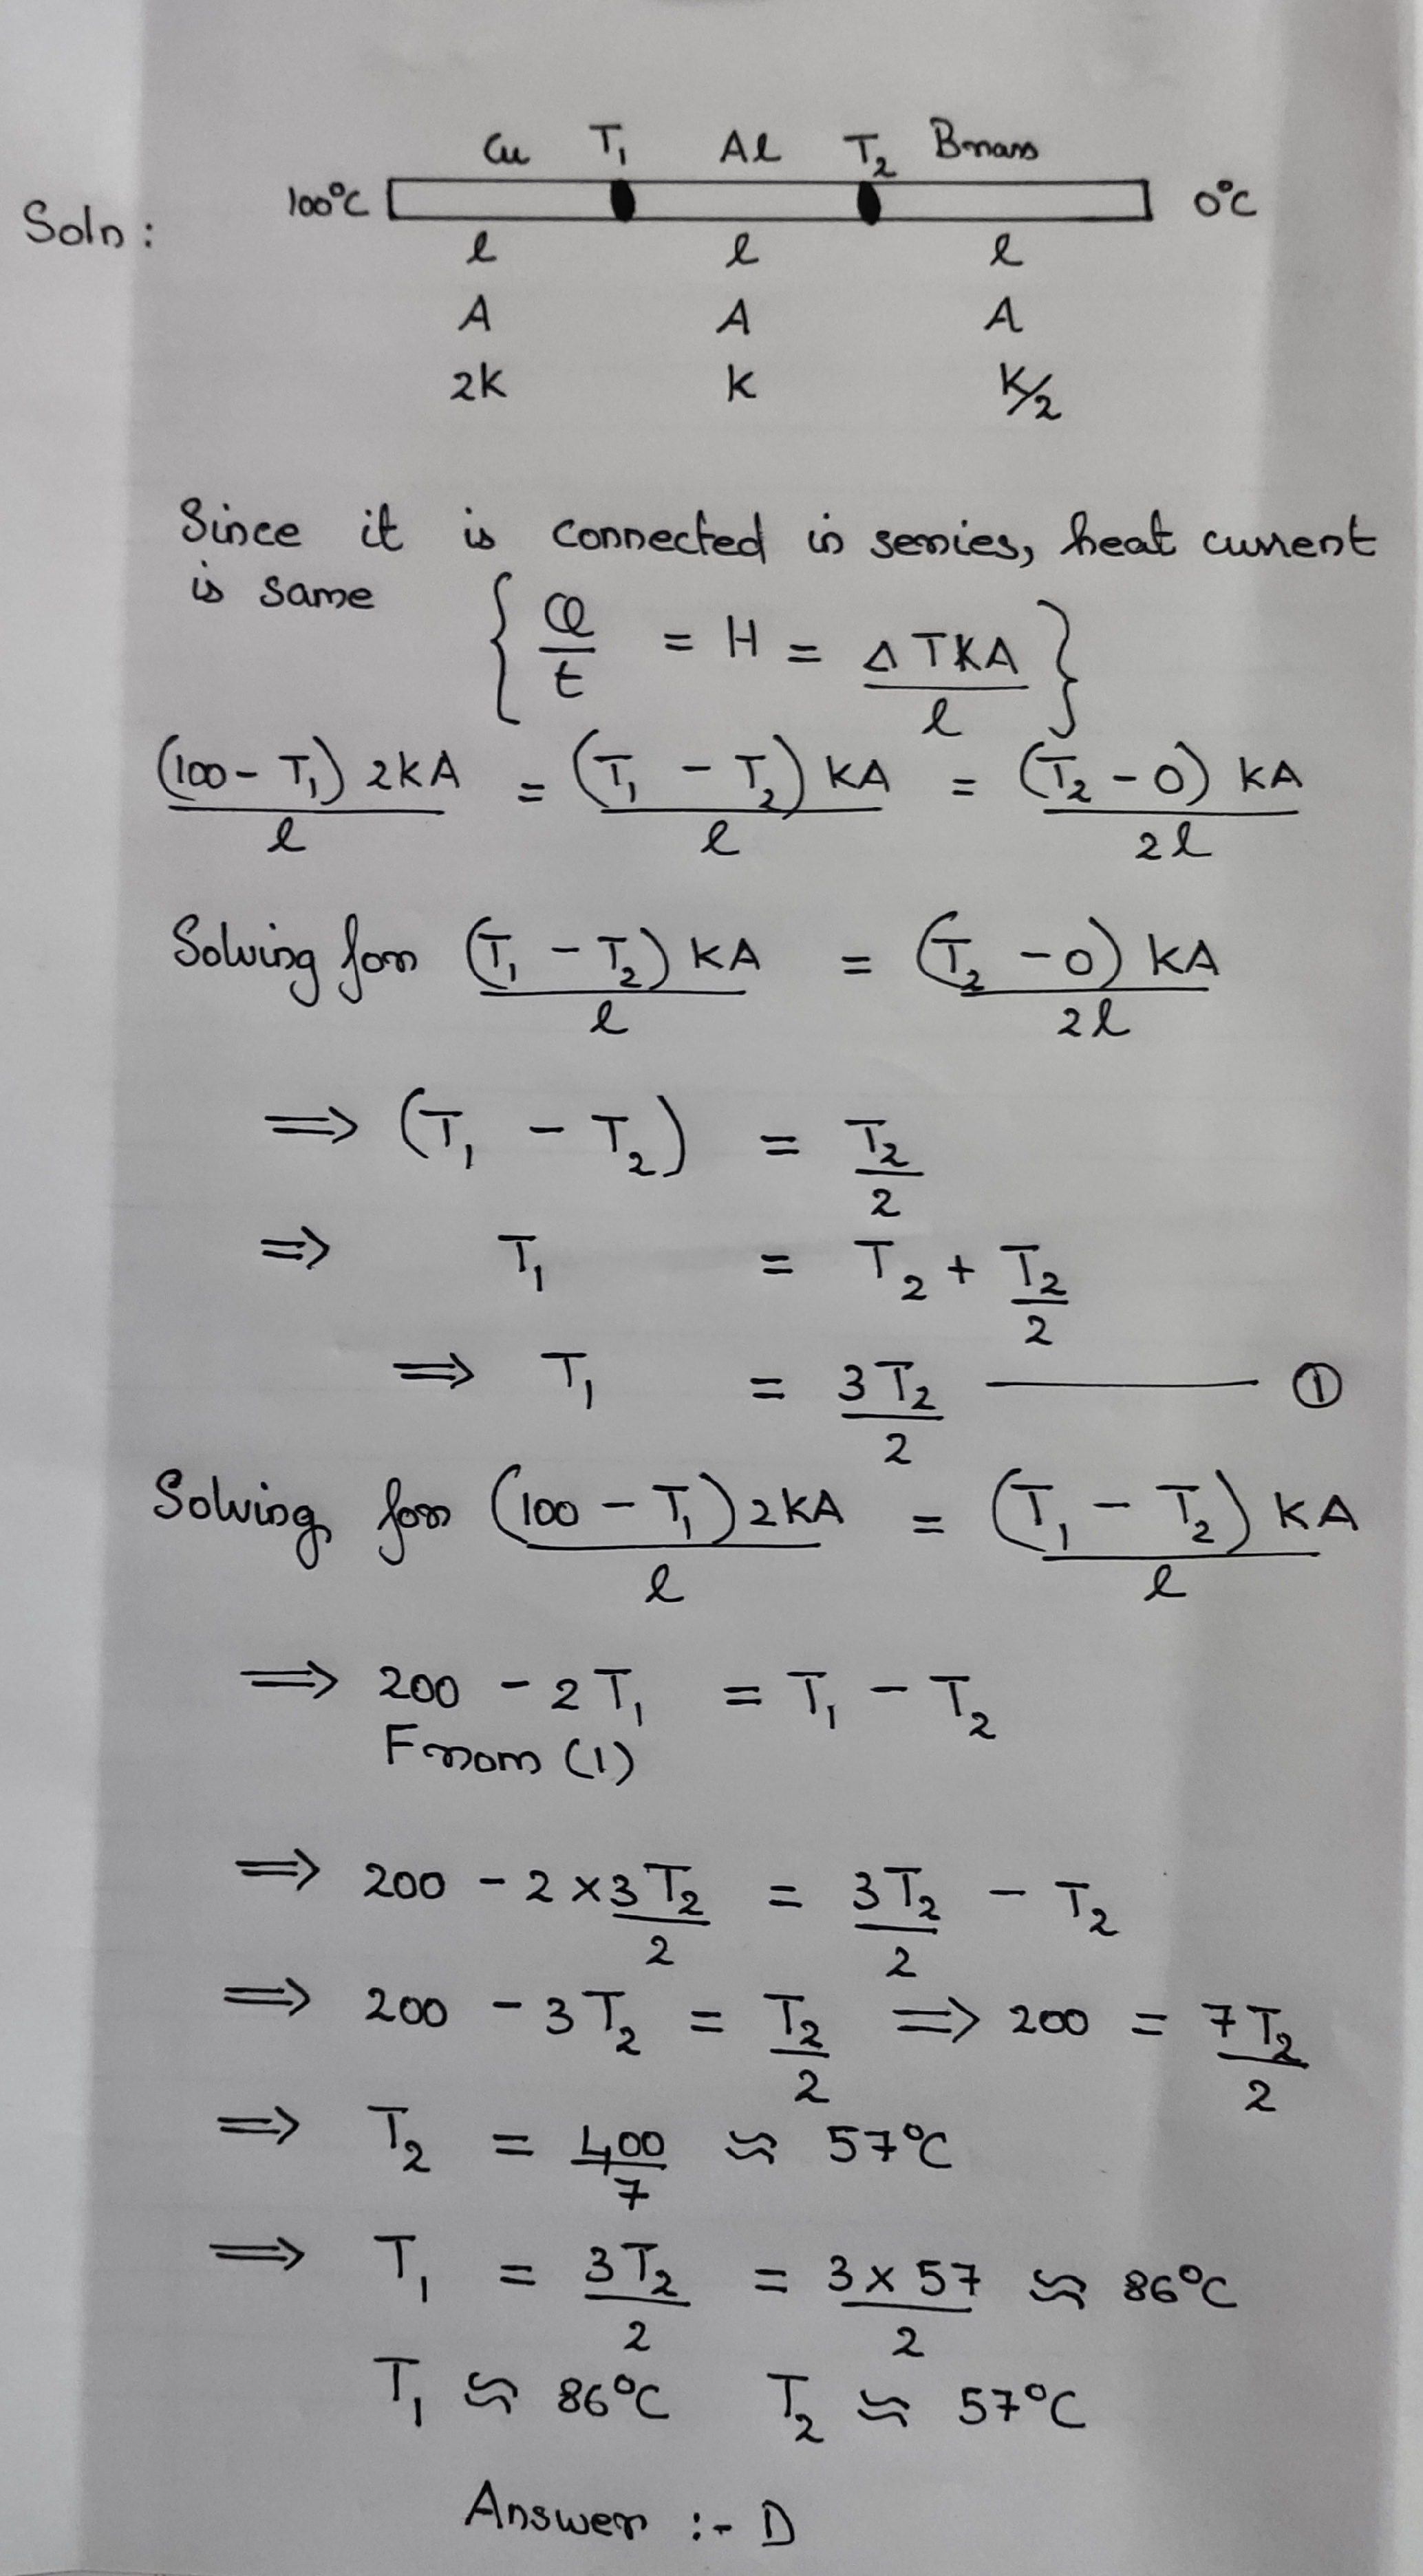 Cu T₁ Al T₂ Brass
Soln : 100°C 0°C
l l l
A A A
2K K K/2
Since it is connected in series, heat current
is same { Q/t = H = ΔTKA/l }
(100 - T₁) 2KA/l = (T₁ - T₂) KA/l = (T₂ - 0) KA/2l
Solving for (T₁ - T₂) KA/l = (T₂ - 0) KA/2l
⇒ (T₁ - T₂) = T₂/2
⇒ T₁ = T₂ + T₂/2
⇒ T₁ = 3T₂/2 ——— ①
Solving for (100 - T₁) 2KA/l = (T₁ - T₂) KA/l
⇒ 200 - 2T₁ = T₁ - T₂
From (1)
⇒ 200 - 2 × 3T₂/2 = 3T₂/2 - T₂
⇒ 200 - 3T₂ = T₂/2 ⇒ 200 = 7T₂/2
⇒ T₂ = 400/7 ≈ 57°C
⇒ T₁ = 3T₂/2 = 3 × 57/2 ≈ 86°C
T₁ ≈ 86°C T₂ ≈ 57°C
Answer :- D